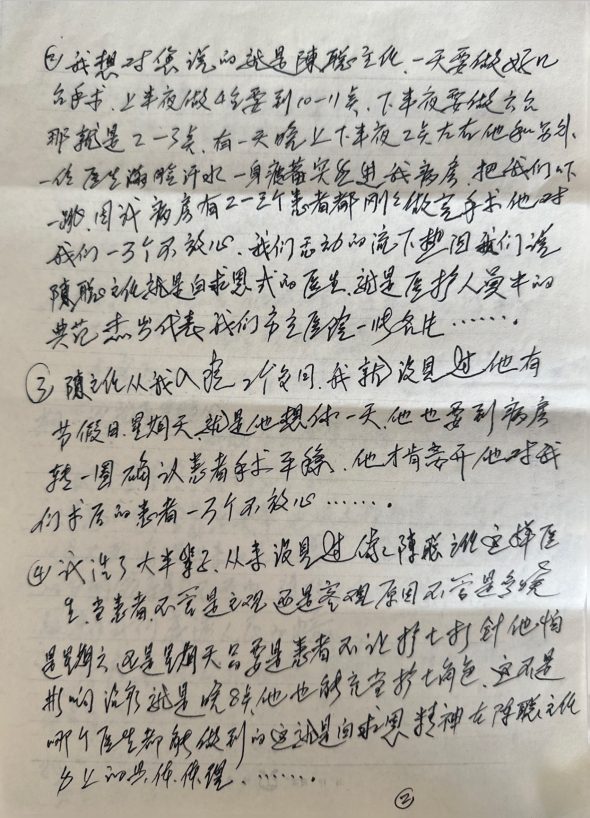 ②我想对您说的就是陳聪主任、一天要做好几
台手术、上半夜做4台要到10-11点、下半夜要做六台
那就是2-3点、有一天晚上下半夜2点左右他和另外
一位医生满脸汗水一身疲惫突然进我病房、把我们吓
一跳、因我病房有2-3个患者都刚刚做完手术他对
我们一万个不放心、我们感动的流下热泪我们说
陳聪主任就是白求恩式的医生、就是医护人员中的
典范杰出代表我们市立医院一张名片……。
③陳主任从我入院2个多月、我就没见过他有
节假日、星期天就是他想休一天、他也要到病房
转一圈确认患者手术平稳、他才肯离开他对我
们术后的患者一万个不放心……。
④我活了大半辈子、从来没见过像陳聪主任这样医
生、当患者、不管是主观还是客观原因不管是多晚
是星期六还是星期天只要是患者不让护士打针他怕
影响治疗就是晚8点他也能充当护士角色、这不是
哪个医生都能做到的这就是白求恩精神在陈聪主任
身上的具体体现、……。
②